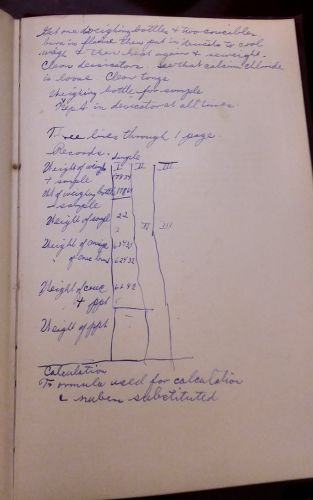 Get one weighing bottles & two crucibles
burn in flame then put in desicats to cool
weigh & then heat again & reweigh.
Clean dessicators. See that calcium chloride
is loose Clean tongs
Weighing bottle for sample
Keep it in desicator at all times
Three lines through 1 page.
Records. Sample
Weight of weigh I II III
+ sample
Wt of weighing bottle
- sample
Weight of sample 22
II III
Weight of
of
Weight of cruc
+ ppt
Weight of ppt
Calculation
Formula used for calculation
& substituted